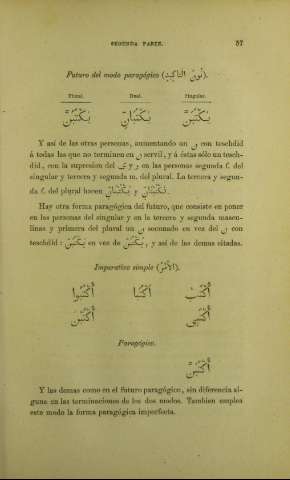 SEGUNDA PARTE. 57
Futuro del modo paragógico (نُونُ التَّاكِيدِ).
Plural. Dual. Singular.
يَكْتُبُنَّ يَكْتُبَانِّ يَكْتُبَنَّ
Y así de las otras personas, aumentando un ن con teschdid
á todas las que no terminen en ن servil, y á éstas sólo un tesch-
did, con la supresion del ى y و en las personas segunda f. del
singular y tercera y segunda m. del plural. La tercera y segun-
da f. del plural hacen يَكْتُبْنَانِّ y تَكْتُبْنَانِّ.
Hay otra forma paragógica del futuro, que consiste en poner
en las personas del singular y en la tercera y segunda mascu-
linas y primera del plural un ن socunado en vez del ن con
teschdid: يَكْتُبَنْ en vez de يَكْتُبَنَّ, y así de las demas citadas.
Imperativo simple (الأَمْرُ).
أُكْتُبُوا أُكْتُبَا أُكْتُبْ
أُكْتُبْنَ أُكْتُبِي
Paragógico.
أُكْتُبَنَّ
Y las demas como en el futuro paragógico, sin diferencia al-
guna en las terminaciones de los dos modos. Tambien emplea
este modo la forma paragógica imperfecta.